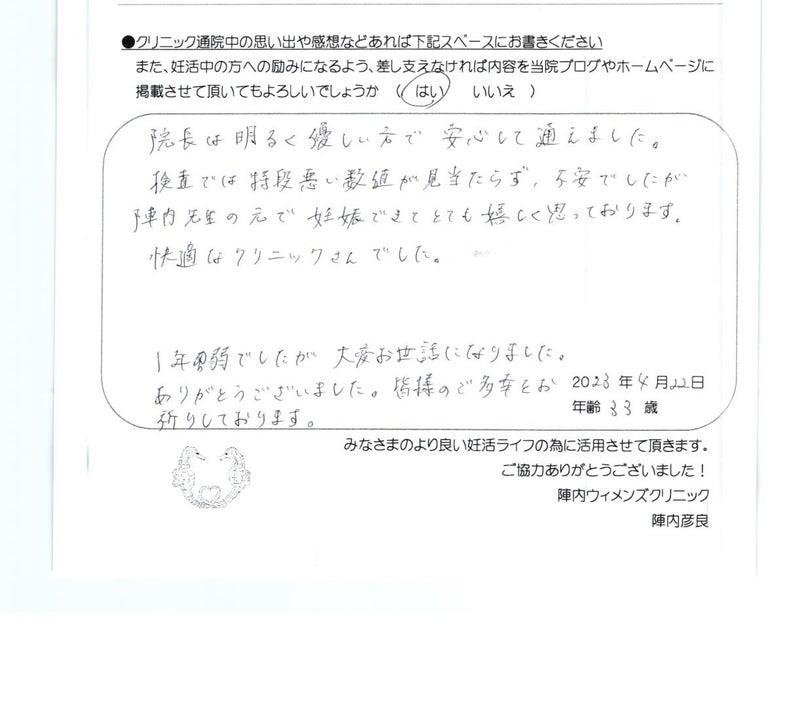 ●クリニック通院中の思い出や感想などあれば下記スペースにお書きください
また、妊活中の方への励みになるよう、差し支えなければ内容を当院ブログやホームページに
掲載させて頂いてもよろしいでしょうか ( はい いいえ )
院長は明るく優しい方で 安心して通えました。
検査では特段悪い数値が見当たらず、不安でしたが
陣内先生の元で妊娠できてとても嬉しく思っております。
快適なクリニックさんでした。
1年弱でしたが 大変お世話になりました。
ありがとうございました。皆様のご多幸をお
祈りしております。
2023年4月22日
年齢 33 歳
みなさまのより良い妊活ライフの為に活用させて頂きます。
ご協力ありがとうございました！
陣内ウィメンズクリニック
陣内彦良